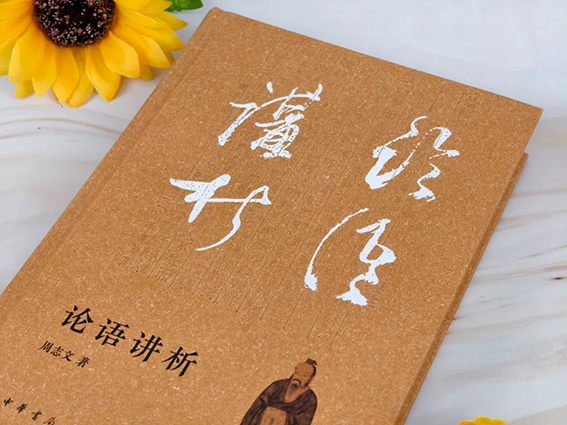 論語
講析
论语讲析
周志文 著
中華書局